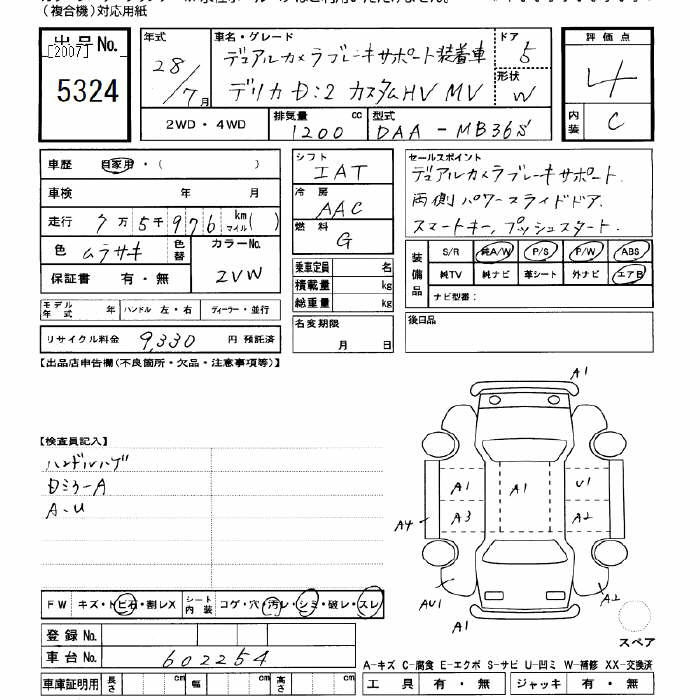 （複合機）対応用紙
出品No.
[2007]
5324
年式
28/7月
車名・グレード
デュアルカメラブレーキサポート装着車
デリカD:2 カスタムHV MV
ドア
5
形状
W
評価点
4
内装
C
2WD・4WD
排気量
1200 cc
型式
DAA-MB36S
車歴 自家用・( )
車検 年 月
走行 7万5千976 km マイル( )
色 ムラサキ 色替 カラーNo. 2VW
保証書 有・無
モデル年式 年 ハンドル 左・右 ディーラー・並行
リサイクル料金 9,330 円 預託済
シフト IAT
冷房 AAC
燃料 G
乗車定員 名
積載量 kg
総重量 kg
名変期限
月 日
セールスポイント
デュアルカメラブレーキサポート.
両側パワースライドドア.
スマートキー, プッシュスタート.
装備品
S/R 純A/W P/S P/W ABS
純TV 純ナビ 革シート 外ナビ エアB
ナビ型番：
後日品
【出品店申告欄（不良箇所・欠品・注意事項等）】
【検査員記入】
ハンドルハゲ
DミラーA
A・U
A1
A1 A1 U1
A4 A3 A2
AU1 A2
A1
スペア
FW キズ・トビ石・割レX シート内装 コゲ・穴・汚レ・シミ・破レ・スレ
登録No.
車台No. 602254
A-キズ C-腐食 E-エクボ S-サビ U-凹ミ W-補修 XX-交換済
車庫証明用 長さ cm 幅 cm 高さ cm
工具 有・無 ジャッキ 有・無